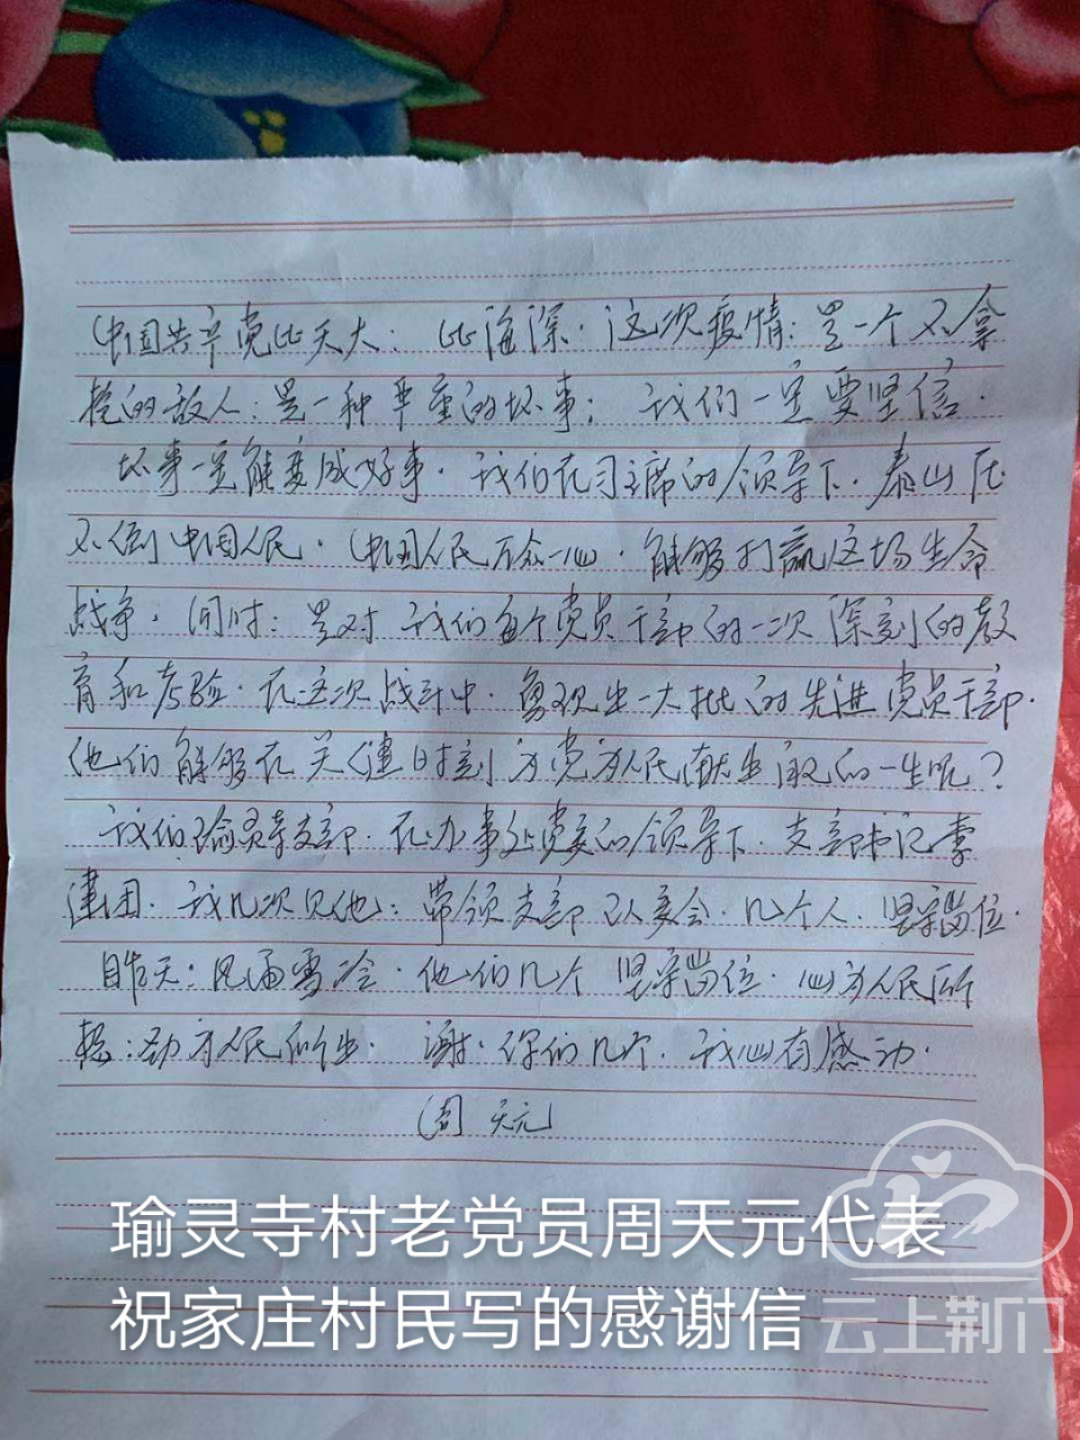 中国共产党比天大：比海深．这次疫情：是一个不拿
枪的敌人：是一种严重的坏事；我们一定要坚信．
坏事一定能变成好事．我们在习主席的领导下．泰山压
不倒中国人民．中国人民万众一心．能够打赢这场生命
战争．同时：是对我们每个党员干部的一次深刻的教
育和考验．在这次战斗中．勇现出一大批的先进党员干部．
他们能够在关键时刻为党为人民献出自己的一生呢？
我们瑜灵寺支部．在办事处党委的领导下．支部书记李
建国．我几次见他：带领支部 委会．几个人．坚守岗位．
昨天：风 雪冷．他们几个坚守岗位．心为人民所
想：劲为人民所出．谢．你们几个．我心有感动．
周天元
瑜灵寺村老党员周天元代表
祝家庄村民写的感谢信
云上荆门